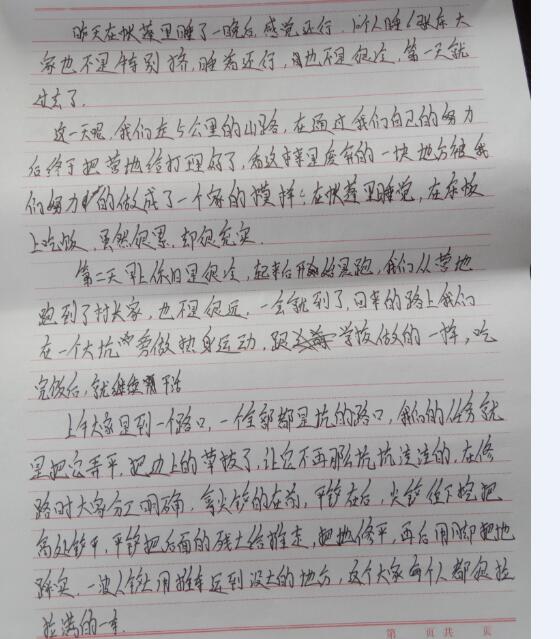 昨天在帐蓬里睡了一晚后,感觉还行,所以睡
家也不是特别挤,睡着还行,也不是很冷,第一天就
过去了.
这一天呢,我们走5公里的山路,在通过我们自己的努力
后终于把营地给打理好了,的一块地方被我
们努力的做成了一个家的模样,在帐蓬里睡觉,在
上吃饭,虽然很累,却很充实.
第二天早上依旧是很冷,起来后开始晨跑,我们从营地
跑到了村长家,也不是很远,一会就到了,回来的路上我们
在一个大坑旁做热身运动,跟学校做的一样,吃
完饭后,就继续干活
上午大家是到一个路口,一个全部都是坑的路口,我们的任务就
是把它弄平,把边上的草拔了,让它不再那么坑坑洼洼的,在修
路时大家分工明确,拿尖铲的在前,平铲在后,尖铲往下挖,把
高处铲平,平铲把后面的残土给推走,把地修平,再后用脚把地
踩实,一波人铲土用推车运到没土的地方,这个大家每个人都很
满的一车.
第 页 共 页